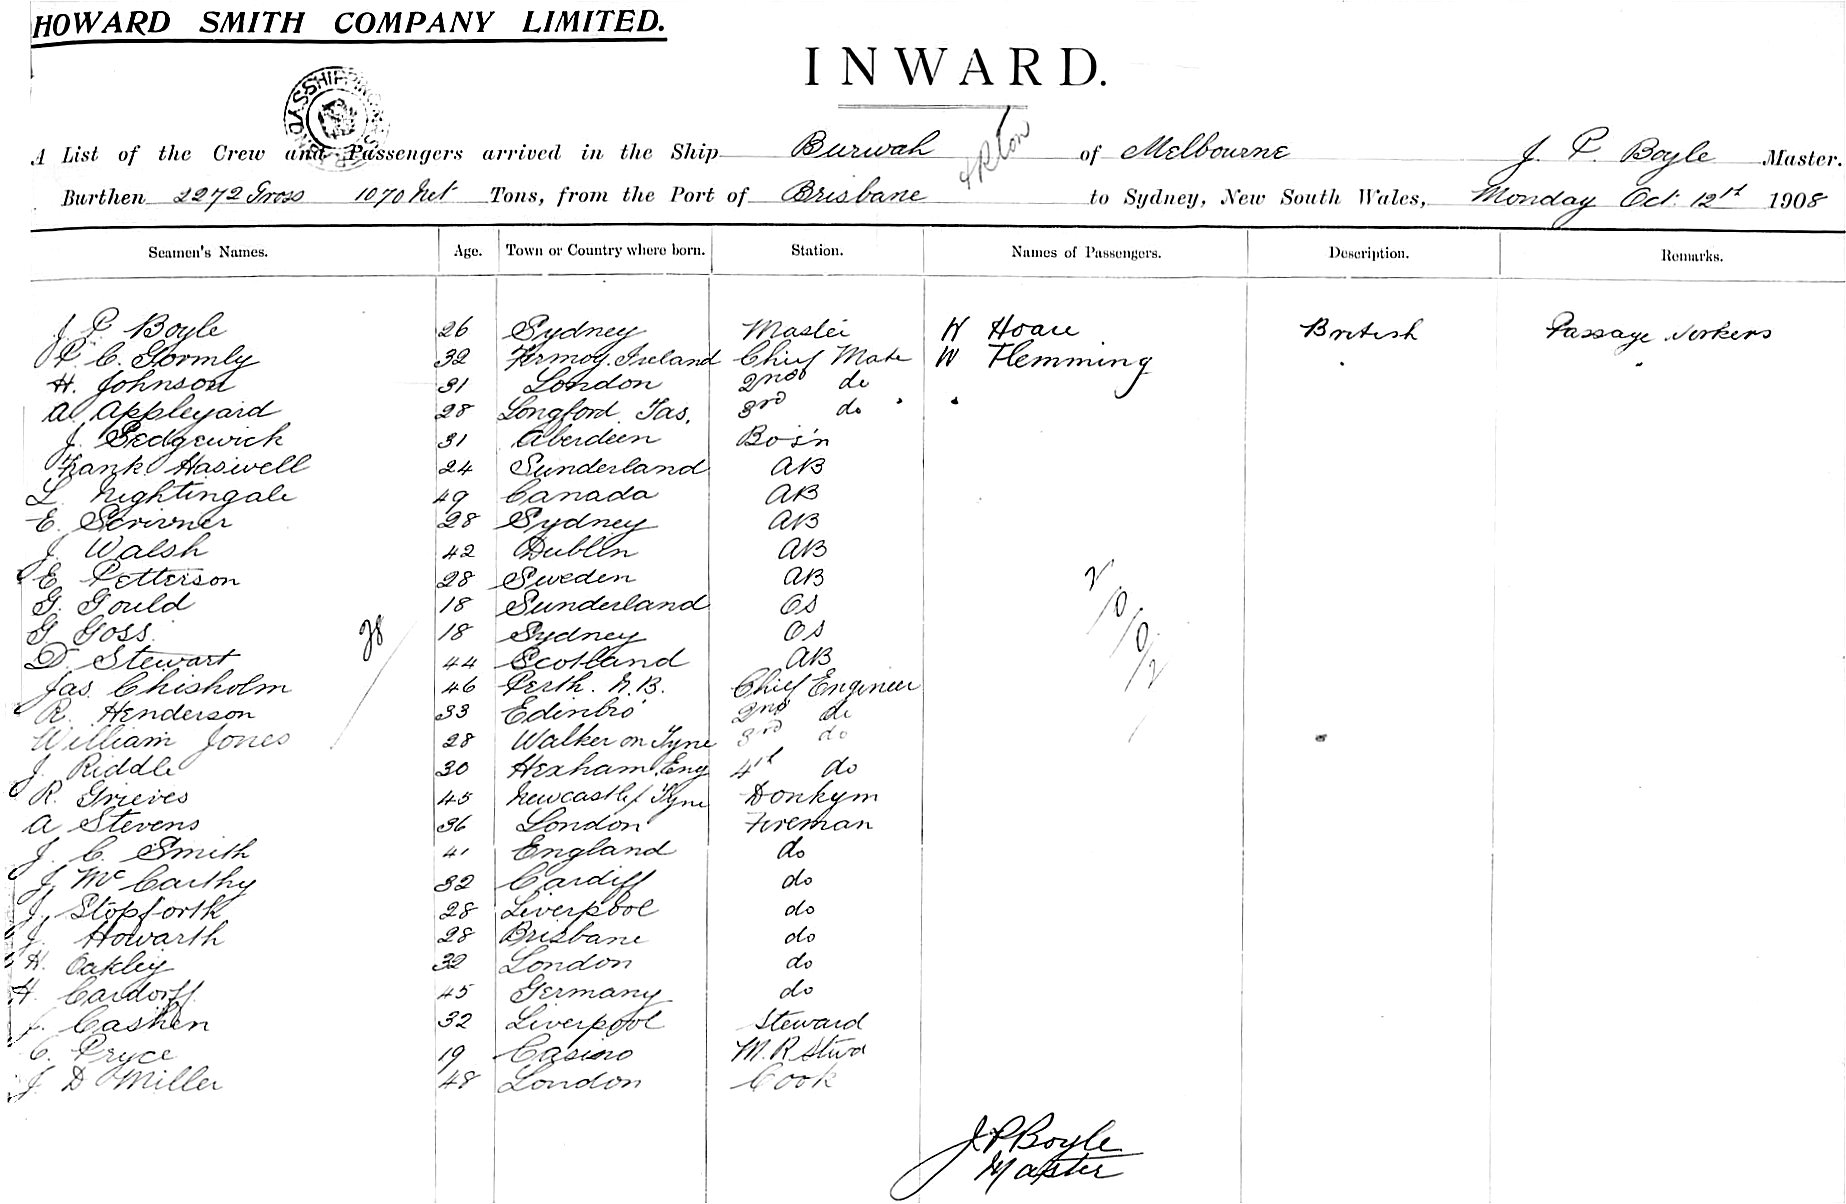 HOWARD SMITH COMPANY LIMITED.
INWARD.
A List of the Crew and Passengers arrived in the Ship Burwah of Melbourne J. P. Boyle Master.
Burthen 2272 Gross 1070 Net Tons, from the Port of Brisbane to Sydney, New South Wales, Monday Oct: 12th 1908
Seamen's Names. Age. Town or Country where born. Station. Names of Passengers. Description. Remarks.
J. P. Boyle 26 Sydney Master W Hoare British Passage Workers
P. C. Gormly 32 Fermoy. Ireland Chief Mate W Flemming "
H. Johnson 31 London 2nd do
A. Appleyard 28 Longford Tas. 3rd do
J. Sedgewick 31 Aberdeen Bos'n
Frank Haswell 24 Sunderland AB
L. Nightingale 49 Canada AB
E. Scrivner 28 Sydney AB
J. Walsh 42 Dublin AB
E. Petterson 28 Sweden AB
G. Gould 18 Sunderland OS
G. Goss. 18 Sydney OS
D. Stewart 44 Scotland AB
28
2/0/0/2
Jas. Chisholm 46 Perth. N.B. Chief Engineer
R. Henderson 33 Edinbro' 2nd do
William Jones 28 Walker on Tyne 3rd do
J. Riddle 30 Hexham. Eng 4th do
R. Grieves 45 Newcastle/Tyne Donkym
A Stevens 36 London Fireman
J. C. Smith 41 England do
J. McCarthy 32 Cardiff do
J. Stopforth 28 Liverpool do
J. Howarth 28 Brisbane do
H. Oakley 32 London do
H. Cardorff 45 Germany do
J. Cashen 32 Liverpool Steward
C. Pryce 19 Casino M. R Stwd
J D Miller 48 London Cook
J. P Boyle
Master